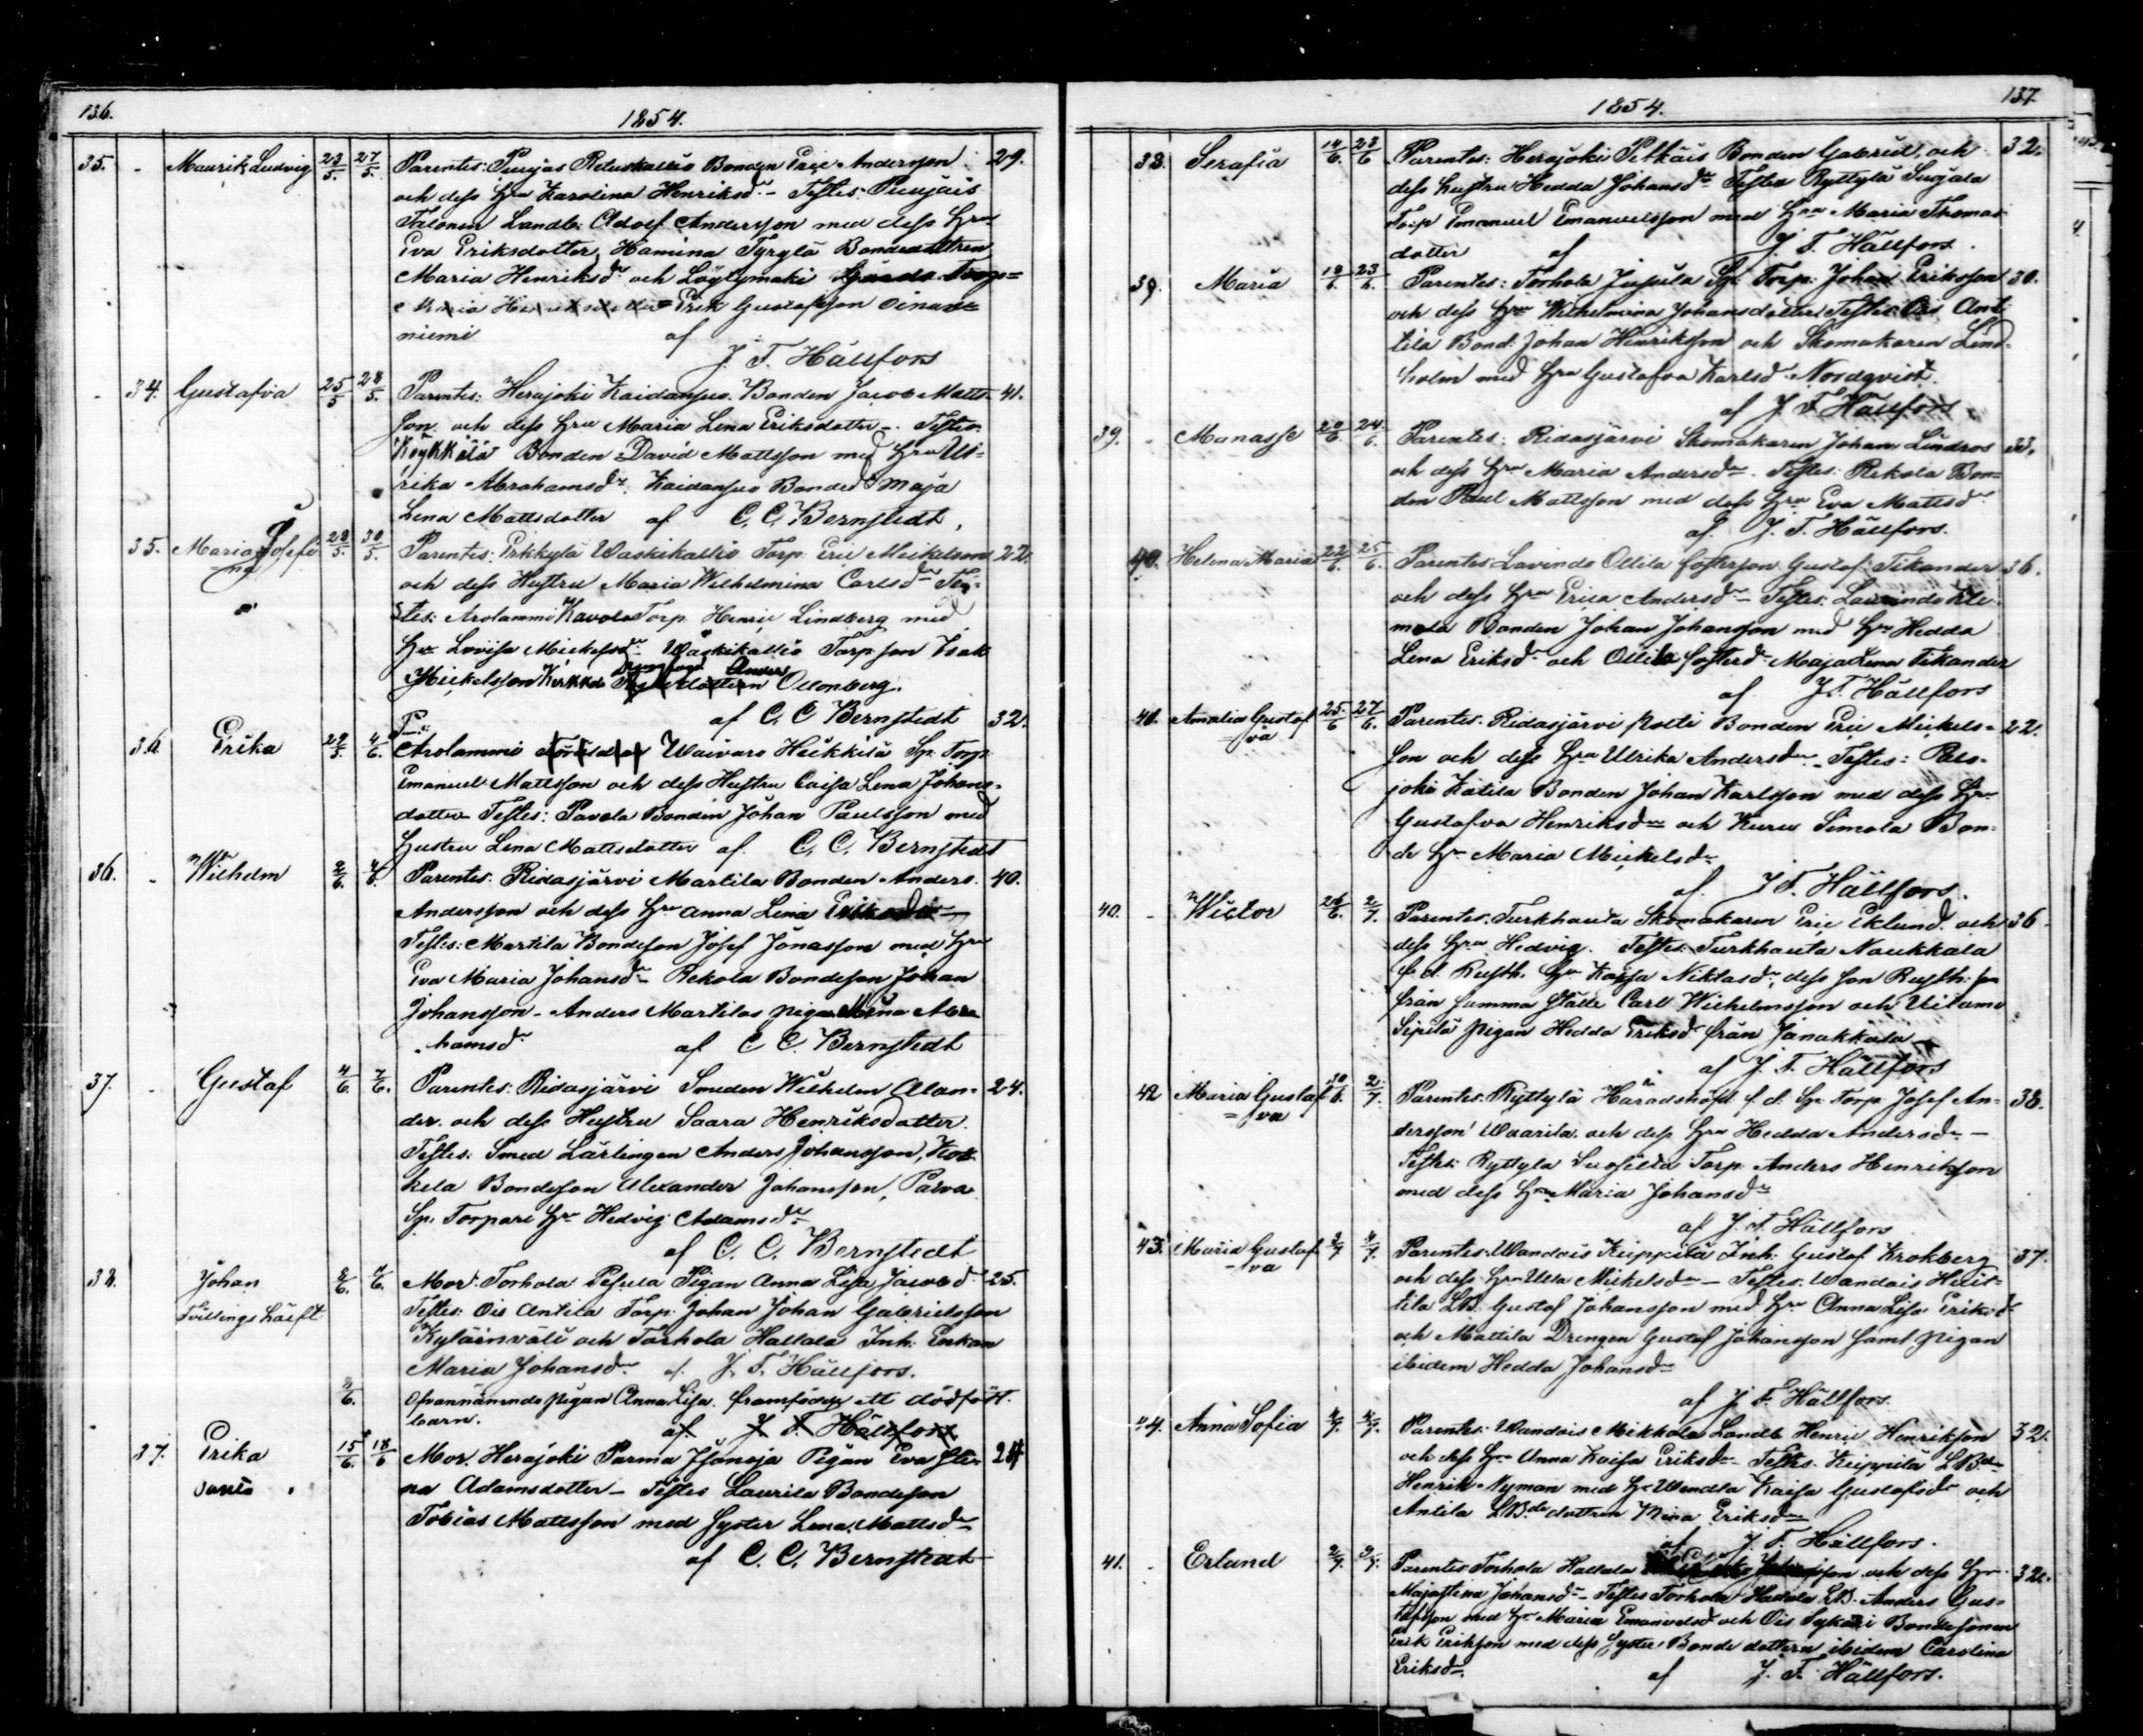 136.
1854.
35. - Maurits Ludvig 23/5. 27/5. Parentes: Puujas Retuskallio Bonden Eric Andersson 29.
och dess Hru Karolina Henriksdr - Testes: Puujais
Talonen Landb. Adolf Andersson med dess Hru
Eva Eriksdotter, Hamina Tyrylä Bondedottren
Maria Henriksdr och Löylymäki
Erik Gustafsson Oinas=
niemi af
J. F. Hällfors
34. Gustafva 25/5 28/5. Parentes: Herajoki Kaidansuo Bonden Jacob Matts- 41.
son och dess Hru Maria Lena Eriksdotter -. Testes
Bonden David Mattsson med Hru Ul=
rika Abrahamsdr. Kaidansuo Bonded. Maja
Lena Mattsdotter af C. C. Bernstedt.
35. Maria Josefi
na 28/5. 30/5. Parentes: Erkkylä Waskikallio Torp. Eric Mickelsson 22.
och dess Hustru Maria Wilhelmina Carlsdr Tes-
tes: Arolammi Kavola Torp. Henric Lindberg med
Hu Lovisa Mickelsdr Waskikallio Torp son Isak
Mickelsson Anders Ollonberg.
af C. C. Bernstedt
36. Erika 29/5. 4/6. P: 32.
Arolammi Waivaro Heikkilä Sp. Torp.
Emanuel Mattsson och dess Hustru Caisa Lena Johans-
dotter Testes: Pavola Bonden Johan Paulsson med
Hustru Lena Mattsdotter af C. C. Bernstedt
36. - Wilhelm 2/6. 4/6. Parentes: Ridasjärvi Martila Bonden Anders 40.
Andersson och dess Hru Anna Lena Eriksdr -
Testes: Martila Bondeson Josef Jonasson med Hru
Eva Maria Johansdr Rekola Bondeson Johan
Johansson - Anders Martilas pigan Abra
hamsdr af C C. Bernstedt
37. - Gustaf 4/6. 7/6. Parentes: Ridasjärvi Smeden Wilhelm Alan- 24.
der. och dess Hustru Saara Henriksdotter.
Testes: Smed Lärlingen Anders Johansson, Kok
kela Bondeson Alexander Johansson, Paava
Sp. Torpare Hu Hedvig Adamsdr
af C. C. Bernstedt
38. Johan
Tvillings hälft 2/6. 4/6. Mor: Torhola Pesula Pigan Anna Lisa Jacobsd 25.
Testes: Ois Antila Torp. Johan Johan Gabrielsson
Kyläinväli och Torhola Hallala Inh. Enkan
Maria Johansdr af J. F. Hällfors.
2/6. Ofvannämnde pigan Anna Lisa framfödde ett dödfödt
barn. af J. F. Hällfors
37. Erika
15/6. 18/6 Mor. Herajoki Parma Isänoja Pigan Eva Sti- 24
na Adamsdotter - Testes Laurila Bondeson
Tobias Mattsson med Syster Lena Mattsdr
af C. C. Bernstedt
1854.
137.
38. Serafia 14/6. 23/6 Parentes: Herajoki Pitkäis Bonden Gabriel, och 32.
dess hustru Hedda Johansdr Testes Ryttylä Sugala
Torp Emanuel Emanuelsson med Hru Maria Thomas
dotter af J. F. Hällfors.
39. Maria 18/6. 23/6. Parentes: Torhola Jussila Sp. Torp. Johan Eriksson 30.
och dess Hru Wilhelmina Johansdotter Testes: Ois Ant
tila Bond. Johan Henriksson och Skomakaren Lind-
holm med Hru Gustafva Karlsdr Nordqvist.
af J. F. Hällfors.
39. - Manasse 20/6 24/6. Parentes: Ridasjärvi Skomakaren Johan Lindros 33.
och dess Hru Maria Andersdr. Testes: Rekola Bon=
den Paul Mattsson med dess Hru Eva Mattsdr
af. J. F. Hällfors.
40. Helena Maria 22/6. 25/6. Parentes Lavinda Ollila fosterson Gustaf Tikander 36.
och dess Hru Erica Andersdr - Testes: Lavinda Kle
mola Bonden Johan Johansson med Hu Hedda
Lena Eriksd och Ollila fosterd. Maja Lena Tikander
af. J. F. Hällfors
41. Amalia Gustaf
=va 25/6 27/6. Parentes: Ridasjärvi Polti Bonden Eric Mickels- 22.
son och dess Hru Ulrika Andersdr. Testes: Palo-
joki Katila Bonden Johan Karlsson med dess Hru
Gustafva Henriksdr och Kuru Simola Bon-
de Hu Maria Mickelsdr
af. J. F. Hällfors.
40. - Wictor 26/6. 2/7. Parentes: Turkhauta Skomakaren Eric Eklund och 36
dess Hru Hedvig. Testes: Turkhauta Naukkala
f.d. Rusth. Hu Kajsa Niklasdr, dess son Rusth. son
från samma ställe Carl Wilhelmsson och Vitamo
Sipilä pigan Hedda Eriksdr från Janakkala
af J. F. Hällfors
42 Maria Gustaf
=va 30/6. 2/7. Parentes: Ryttylä Häradshöfd. f. d. Sp. Torp. Josef An- 38.
dersson Waarila. och dess Hru Hedda Andersdr -
Testes: Ryttyla Suosilta Torp. Anders Henriksson
med dess Hru Maria Johansdr
af J. F. Hällfors
43. Maria Gustaf
-va 2/7 4/7. Parentes: Wandais Keippilä Inh. Gustaf Krokberg 37.
och dess Hru Ulla Mickelsdr - Testes: Wandais Heit-
tila LB. Gustaf Johansson med Hu Anna Lisa Eriksdr
och Mattila Drengen Gustaf Johansson samt pigan
ibidem Hedda Johansdr
af J. F. Hällfors.
44. Anna Sofia 4/7. 4/7. Parentes: Wandais Mikkola Landb Henric Henriksson 32.
och dess Hru Anna Kaisa Eriksdr - Testes. Keippilä LBde
Henrik Nyman med Hu Wendla Kaisa Gustafsdr och
Antila LBde dottren Nina Eriksdr
af J. F. Hällfors.
41. - Erland 2/7. 9/7. Parentes Torhola Hallala och dess Hru 32.
Majastina Johansdr - Testes Torhola Hallala LB. Anders Gus-
tafsson med Hu Maria Emanuelsdr och Ois Sykäri Bondesonen
Erik Eriksson med dess Syster Bonde dottern ibidem Carolina
Eriksdr. af J. F. Hällfors.